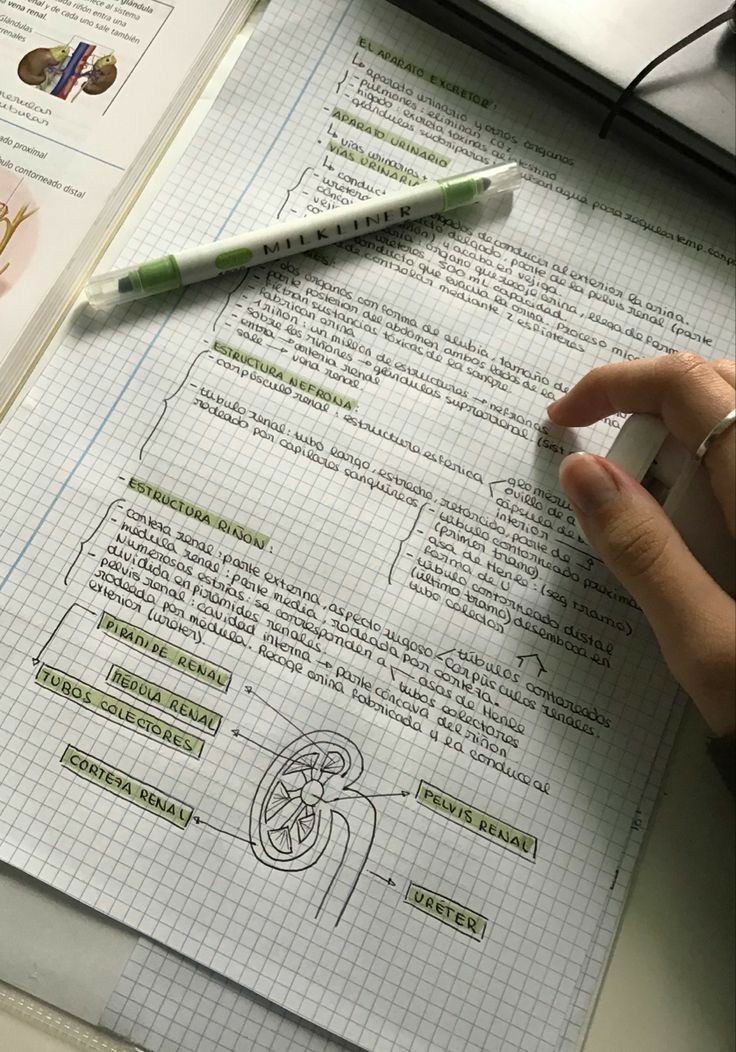 glándula
nece al sistema
ada riñón entra una
enal y de cada uno sale también
a vena renal.
Glándulas
renales
ado proximal
bulo contorneado distal
EL APARATO EXCRETOR:
↳ aparato urinario y otros órganos
- pulmones: eliminan CO2
- hígado: excreta toxinas al intestino
- glándulas sudoríparas: agua para regular temp. corp
- APARATO URINARIO
↳ vías urinarias +
• VÍAS URINARIA
↳ conduct de conducir al exterior la orina.
- uréter to delgado: parte de la pelvis renal (parte
cónca ón) y acaba en vejiga
- veji órgano que recoge orina, llega de
uréteres, 500 mL capacidad
conducto que evacúa la orina. Proceso micc
de controlar mediante 2 esfínteres
dos órganos con forma de alubia: tamaño de
- parte posterior del abdomen ambos lados de la
- filtran sustancias tóxicas de la sangre.
- fabrican orina
- 1 riñón: un millón de estructuras → nefronas
- sobre los riñones → glándulas suprarrenal (sist
- entra → arteria renal
- sale → vena renal
- ESTRUCTURA NEFRONA:
- corpúsculo renal: estructura esférica
glomeru
ovillo de a
cápsula de
interior
- túbulo renal: tubo largo, estrecho, retorcido, parte de
rodeado por capilares sanguíneos
- túbulo contorneado proxima
(primer tramo).
- asa de Henle: (seg tramo)
forma de U
- túbulo contorneado distal
(último tramo) desemboca en
tubo colector
- ESTRUCTURA RIÑON:
- corteza renal: parte externa, aspecto rugoso
túbulos contorneados
corpúsculos renales.
- médula renal: parte media, rodeada por corteza.
Numerosas estrías: se corresponden a
asas de Henle
tubos colectores
dividida en pirámides renales.
- pelvis renal: cavidad interna → parte cóncava del riñón
rodeada por médula. Recoge orina fabricada y la conduce al
exterior (uréter)
PIRÁMIDE RENAL
MÉDULA RENAL
TUBOS COLECTORES
CORTEZA RENAL
PELVIS RENAL
URÉTER
MILKLINER